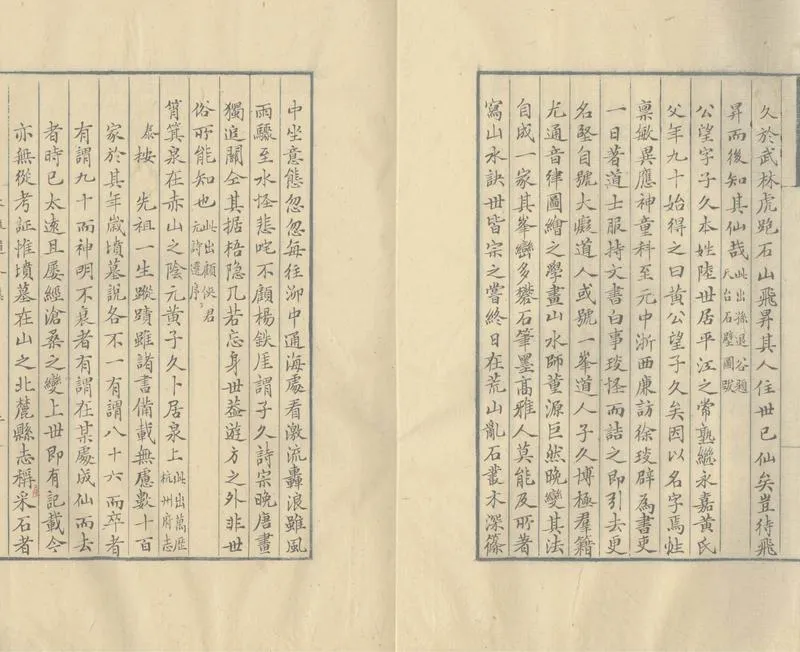 久於武林虎跑石山飛昇其人住世已仙矣豈待飛
昇而後知其仙哉此出孫退谷題天台石壁圖跋
公望字子久本姓陸世居平江之常熟繼永嘉黃氏
父年九十始得之曰黃公望子久矣因以名字焉性
稟敏異應神童科至元中浙西康訪徐琰辟為書吏
一日著道士服持文書白事琰怪而詰之即引去更
名堅自號大癡道人或號一峯道人子久博極羣籍
尤通音律圖繪之學畫山水師董源巨然晚變其法
自成一家其峯巒多礬石筆墨高雅人莫能及所著
寫山水訣世皆宗之嘗終日在荒山亂石叢木深篠
中坐意態忽忽每往泖中通海處看激流轟浪雖風
雨驟至水怪悲咤不顧楊鉄厓謂子久詩宗晚唐畫
獨追關仝其据梧隐几若忘身世葢遊方之外非世
俗所能知也此出顧俠君元詩選序
筲箕泉在赤山之陰元黃子久卜居泉上此出萬歷杭州府志
泰按先祖一生蹤蹟雖諸書備載無慮數十百
家於其年歲墳墓說各不一有謂八十六而卒者
有謂九十而神明不衰者有謂在某處成仙而去
者時已太遠且屡經滄桑之變上世即有記載今
亦無從考証惟墳墓在山之北麓縣志稱采石者